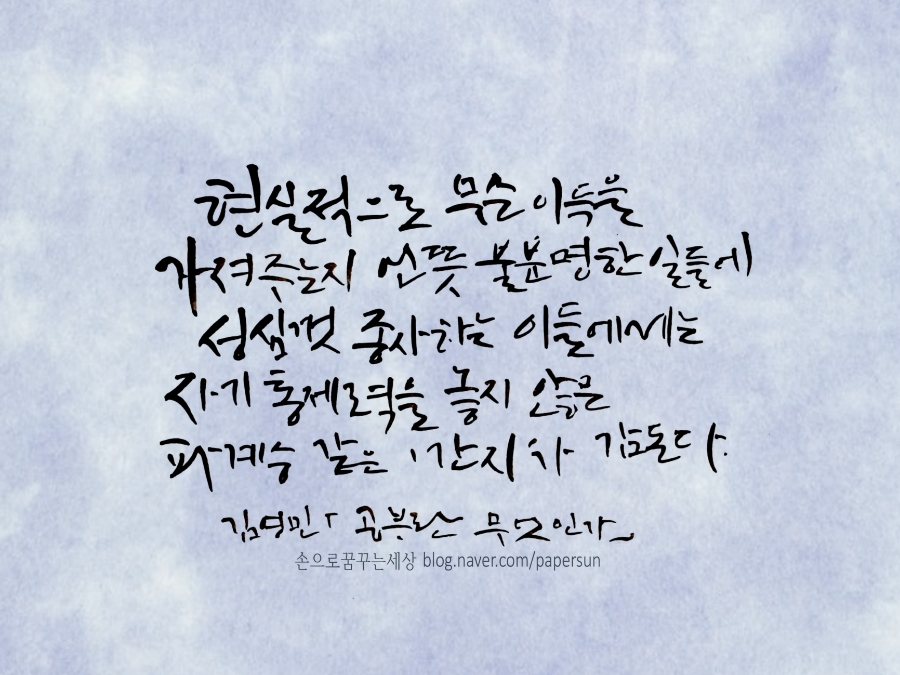 현실적으로 무슨 이득을
가져주는지 언뜻 불분명한 일들에
성심껏 종사하는 이들에게는
자기 통제력을 놓지 않은
파계승 같은 '간지'가 감돈다.
김영민「공부란 무엇인가」
손으로꿈꾸는세상 blog.naver.com/papersun